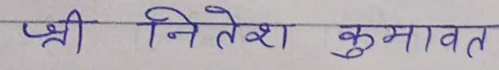 श्री नितेश कुमावत